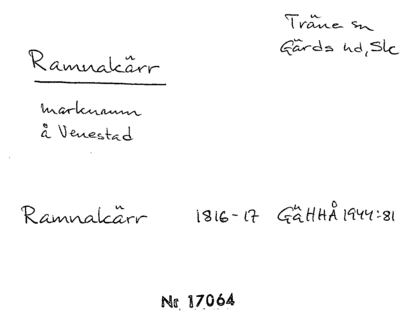 Träne sn
Gärds hd, Sk
Ramnakärr
marknamn
å Venestad
Ramnakärr 1816-17 GäHHÅ 1944:81
Nr 17064